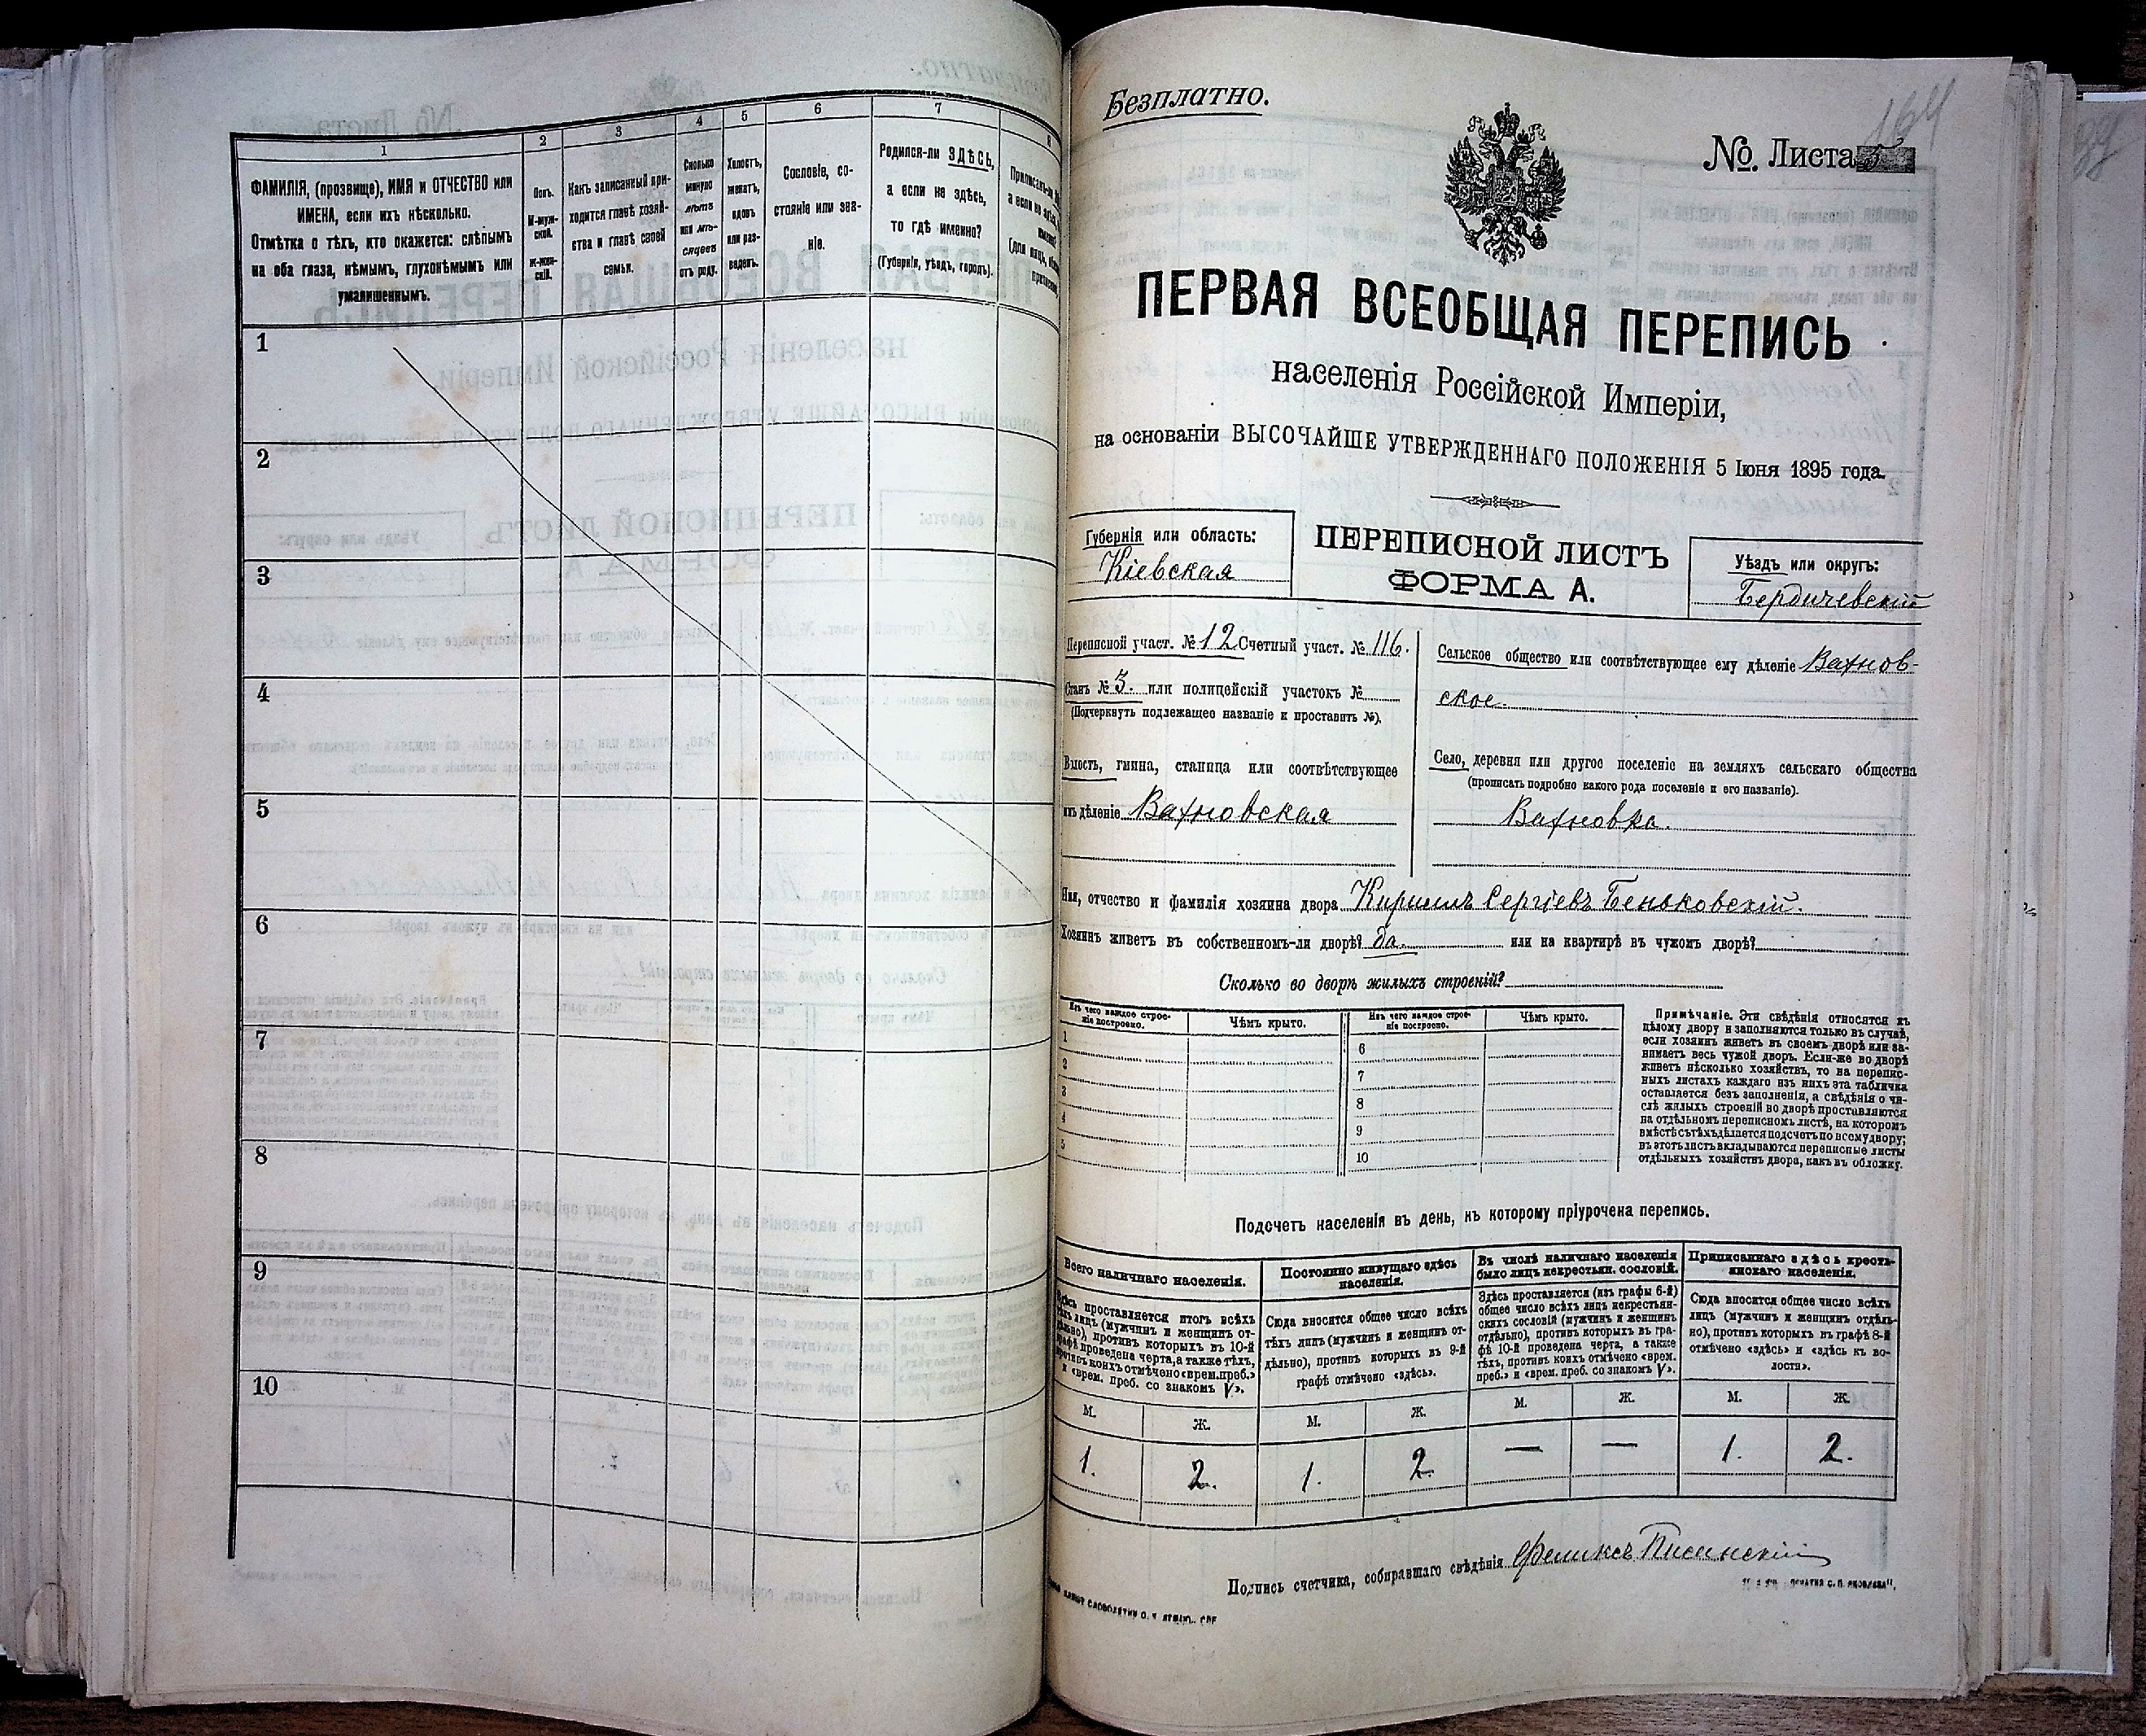 1
2
3
4
5
6
7
8
ФАМИЛІЯ, (прозвище), ИМЯ и ОТЧЕСТВО или
ИМЕНА, если ихъ нѣсколько.
Отмѣтка о тѣхъ, кто окажется: слѣпымъ
на оба глаза, нѣмымъ, глухонѣмымъ или
умалишеннымъ.
Полъ.
М-муж-
ской.
Ж-жен-
скій.
Какъ записанный при-
ходится главѣ хозяй-
ства и главѣ своей
семьи.
Сколько
минуло
лѣтъ
или мѣ-
сяцевъ
отъ роду.
Холостъ,
женатъ,
вдовъ
или раз-
веденъ.
Сословіе, со-
стояніе или зва-
ніе.
Родился-ли ЗДѢСЬ,
а если не здѣсь,
то гдѣ именно?
(Губернія, уѣздъ, городъ).
1
2
3
4
5
6
7
8
9
10
Безплатно.
164
№ Листа
ПЕРВАЯ ВСЕОБЩАЯ ПЕРЕПИСЬ
населенія Россійской Имперіи,
на основаніи ВЫСОЧАЙШЕ УТВЕРЖДЕННАГО ПОЛОЖЕНІЯ 5 Іюня 1895 года.
Губернія или область:
Кіевская
ПЕРЕПИСНОЙ ЛИСТЪ
ФОРМА А.
Уѣздъ или округъ:
Бердичевскій
Переписной участ. № 12 Счетный участ. № 116.
Станъ № 3. или полицейскій участокъ №
(Подчеркнуть подлежащее названіе и проставить №).
Волость, гмина, станица или соотвѣтствующее
имъ дѣленіе Вахновская
Сельское общество или соотвѣтствующее ему дѣленіе Вахнов-
ское.
Село, деревня или другое поселеніе на земляхъ сельскаго общества
(прописать подробно какого рода поселеніе и его названіе).
Вахновка.
Имя, отчество и фамилія хозяина двора Кириллъ Сергѣевъ Беньковскій.
Хозяинъ живетъ въ собственномъ-ли дворѣ? да. или на квартирѣ въ чужомъ дворѣ?
Сколько во дворѣ жилыхъ строеній?
Изъ чего каждое строе-
ніе построено.
Чѣмъ крыто.
Изъ чего каждое строе-
ніе построено.
Чѣмъ крыто.
1
2
3
4
5
6
7
8
9
10
Примѣчаніе. Эти свѣдѣнія относятся къ
цѣлому двору и заполняются только въ случаѣ,
если хозяинъ живетъ въ своемъ дворѣ или за-
нимаетъ весь чужой дворъ. Если-же во дворѣ
живетъ нѣсколько хозяйствъ, то на перепис-
ныхъ листахъ каждаго изъ нихъ эта табличка
оставляется безъ заполненія, а свѣдѣнія о чи-
слѣ жилыхъ строеній во дворѣ проставляются
на отдѣльномъ переписномъ листѣ, на которомъ
вмѣстѣ съ тѣхъ дѣлается подсчетъ по всему двору;
въ этотъ листъ вкладываются переписные листы
отдѣльныхъ хозяйствъ двора, какъ въ обложку.
Подсчетъ населенія въ день, къ которому пріурочена перепись.
Всего наличнаго населенія.
Здѣсь проставляется итогъ всѣхъ
тѣхъ лицъ (мужчинъ и женщинъ от-
дѣльно), противъ которыхъ въ 10-й
графѣ проведена черта, а также тѣхъ,
противъ коихъ отмѣчено «врем. преб.»
и «врем. преб. со знакомъ V».
Постоянно живущаго здѣсь
населенія.
Сюда вносится общее число всѣхъ
тѣхъ лицъ (мужчинъ и женщинъ от-
дѣльно), противъ которыхъ въ 9-й
графѣ отмѣчено «здѣсь».
Въ числѣ наличнаго населенія
было лицъ некрестьян. сословій.
Здѣсь проставляется (изъ графы 6-й)
общее число всѣхъ лицъ некрестьян-
скихъ сословій (мужчинъ и женщинъ
отдѣльно), противъ которыхъ въ гра-
фѣ 10-й проведена черта, а также
тѣхъ, противъ коихъ отмѣчено «врем.
преб.» и «врем. преб. со знакомъ V».
Приписаннаго здѣсь кресть-
янскаго населенія.
Сюда вносится общее число всѣхъ
лицъ (мужчинъ и женщинъ отдѣль-
но), противъ которыхъ въ графѣ 8-й
отмѣчено «здѣсь» и «здѣсь къ во-
лости».
М. Ж. М. Ж. М. Ж. М. Ж.
1. 2. 1. 2. — — 1. 2.
Подпись счетчика, собиравшаго свѣдѣнія Феликсъ Писинскій